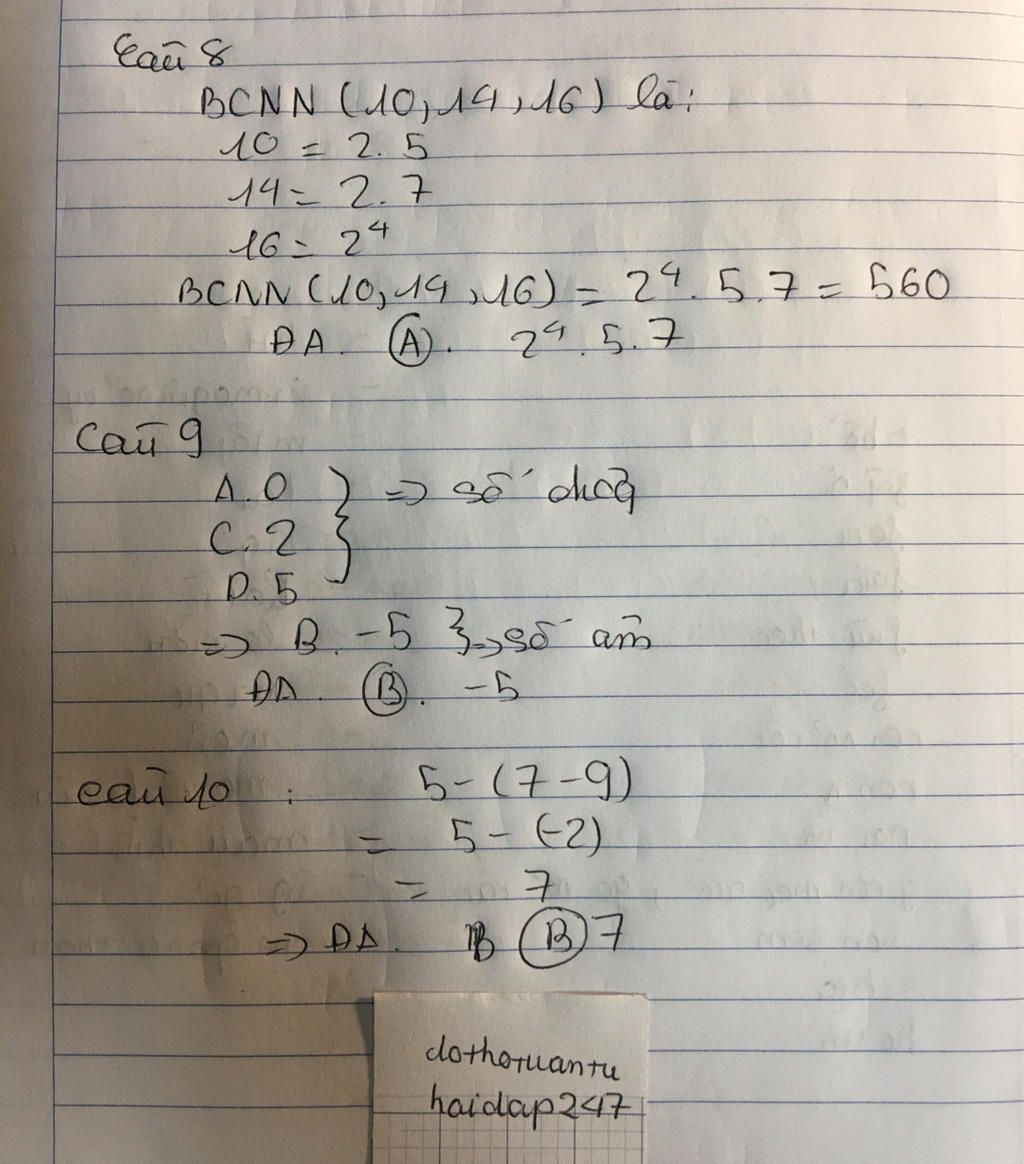 Câu 8
BCNN (10, 14, 16) là:
10 = 2. 5
14 = 2. 7
16 = 2⁴
BCNN (10, 14, 16) = 2⁴. 5. 7 = 560
ĐA. A. 2⁴. 5. 7
Câu 9
A. 0 } => số
C. 2
D. 5
=> B. -5 } => số âm
ĐA. B. -5
Câu 10 : 5 - (7 - 9)
= 5 - (-2)
= 7
=> ĐA. B B 7
dothotuantu
hoidap247